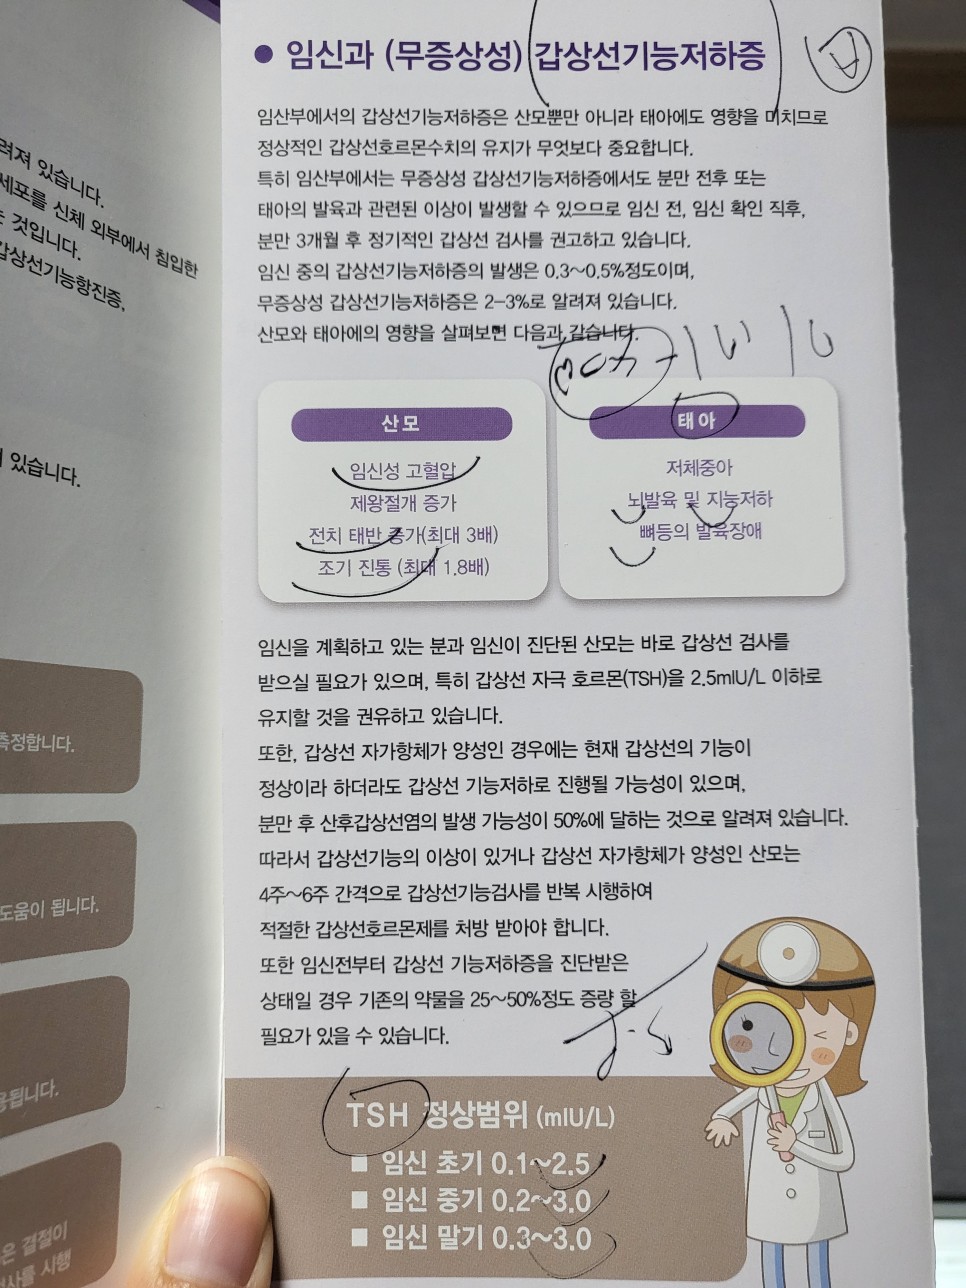 려져 있습니다.
세포를 신체 외부에서 침입한
는 것입니다.
갑상선기능항진증,
있습니다.
측정합니다.
도움이 됩니다.
용됩니다.
은 결절이
사를 시행
임신과 (무증상성) 갑상선기능저하증
임산부에서의 갑상선기능저하증은 산모뿐만 아니라 태아에도 영향을 미치므로
정상적인 갑상선호르몬수치의 유지가 무엇보다 중요합니다.
특히 임산부에서는 무증상성 갑상선기능저하증에서도 분만 전후 또는
태아의 발육과 관련된 이상이 발생할 수 있으므로 임신 전, 임신 확인 직후,
분만 3개월 후 정기적인 갑상선 검사를 권고하고 있습니다.
임신 중의 갑상선기능저하증의 발생은 0.3~0.5%정도이며,
무증상성 갑상선기능저하증은 2-3%로 알려져 있습니다.
산모와 태아에의 영향을 살펴보면 다음과 같습니다.
산모
임신성 고혈압
제왕절개 증가
전치 태반 증가(최대 3배)
조기 진통 (최대 1.8배)
태아
저체중아
뇌발육 및 지능저하
뼈등의 발육장애
임신을 계획하고 있는 분과 임신이 진단된 산모는 바로 갑상선 검사를
받으실 필요가 있으며, 특히 갑상선 자극 호르몬(TSH)을 2.5mIU/L 이하로
유지할 것을 권유하고 있습니다.
또한, 갑상선 자가항체가 양성인 경우에는 현재 갑상선의 기능이
정상이라 하더라도 갑상선 기능저하로 진행될 가능성이 있으며,
분만 후 산후갑상선염의 발생 가능성이 50%에 달하는 것으로 알려져 있습니다.
따라서 갑상선기능의 이상이 있거나 갑상선 자가항체가 양성인 산모는
4주~6주 간격으로 갑상선기능검사를 반복 시행하여
적절한 갑상선호르몬제를 처방 받아야 합니다.
또한 임신전부터 갑상선 기능저하증을 진단받은
상태일 경우 기존의 약물을 25~50%정도 증량 할
필요가 있을 수 있습니다.
TSH 정상범위 (mIU/L)
■ 임신 초기 0.1~2.5
■ 임신 중기 0.2~3.0
■ 임신 말기 0.3~3.0